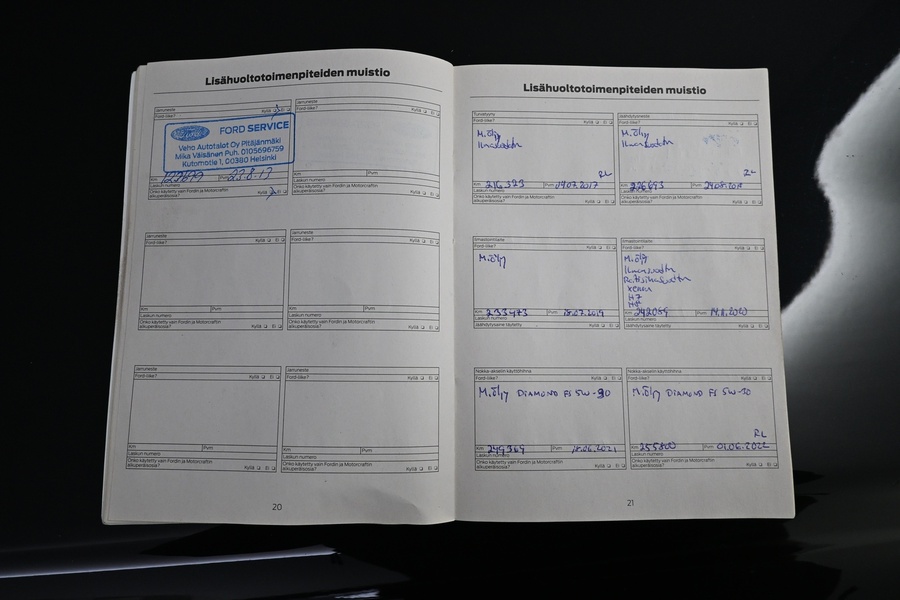 Lisähuoltotoimenpiteiden muistio
Jarruneste
Ford-liike? Kyllä Ei
Ford
FORD SERVICE
Veho Autotalot Oy Pitäjänmäki
Mika Väisänen Puh. 0105696759
Kutomotie 1, 00380 Helsinki
Km Pvm 23.8.13
Laskun numero
Onko käytetty vain Fordin ja Motorcraftin
alkuperäisosia? Kyllä Ei
Jarruneste
Ford-liike? Kyllä Ei
Km Pvm
Laskun numero
Onko käytetty vain Fordin ja Motorcraftin
alkuperäisosia? Kyllä Ei
Jarruneste
Ford-liike? Kyllä Ei
Km Pvm
Laskun numero
Onko käytetty vain Fordin ja Motorcraftin
alkuperäisosia? Kyllä Ei
Jarruneste
Ford-liike? Kyllä Ei
Km Pvm
Laskun numero
Onko käytetty vain Fordin ja Motorcraftin
alkuperäisosia? Kyllä Ei
Jarruneste
Ford-liike? Kyllä Ei
Km Pvm
Laskun numero
Onko käytetty vain Fordin ja Motorcraftin
alkuperäisosia? Kyllä Ei
Jarruneste
Ford-liike? Kyllä Ei
Km Pvm
Laskun numero
Onko käytetty vain Fordin ja Motorcraftin
alkuperäisosia? Kyllä Ei
20
Lisähuoltotoimenpiteiden muistio
Turvatyyny
Ford-liike? Kyllä Ei
M.öljy
Ilmansuodatin
RL
Km 216323 Pvm 04.07.2017
Laskun numero
Onko käytetty vain Fordin ja Motorcraftin
alkuperäisosia? Kyllä Ei
Jäähdytysneste
Ford-liike? Kyllä Ei
M.öljy
Ilmansuodatin
RL
Km 226693 Pvm
Laskun numero
Onko käytetty vain Fordin ja Motorcraftin
alkuperäisosia? Kyllä Ei
Ilmastointilaite
Ford-liike? Kyllä Ei
M.öljy
Km 233473 Pvm 18.07.2019
Laskun numero
Jäähdytysaine täytetty
Ilmastointilaite
Ford-liike? Kyllä Ei
M.öljy
Ilmansuodatin
Raitisilmasuodatin
xenon
H7
Km 242089 Pvm 14.11.2020
Laskun numero
Jäähdytysaine täytetty
Nokka-akselin käyttöhihna
Ford-liike? Kyllä Ei
M.öljy DIAMOND FS 5W-30
Km 249369 Pvm 18.06.2021
Laskun numero
Onko käytetty vain Fordin ja Motorcraftin
alkuperäisosia? Kyllä Ei
Nokka-akselin käyttöhihna
Ford-liike? Kyllä Ei
M.öljy DIAMOND FS 5W-30
RL
Km 255800 Pvm 01.06.2022
Laskun numero
Onko käytetty vain Fordin ja Motorcraftin
alkuperäisosia? Kyllä Ei
21